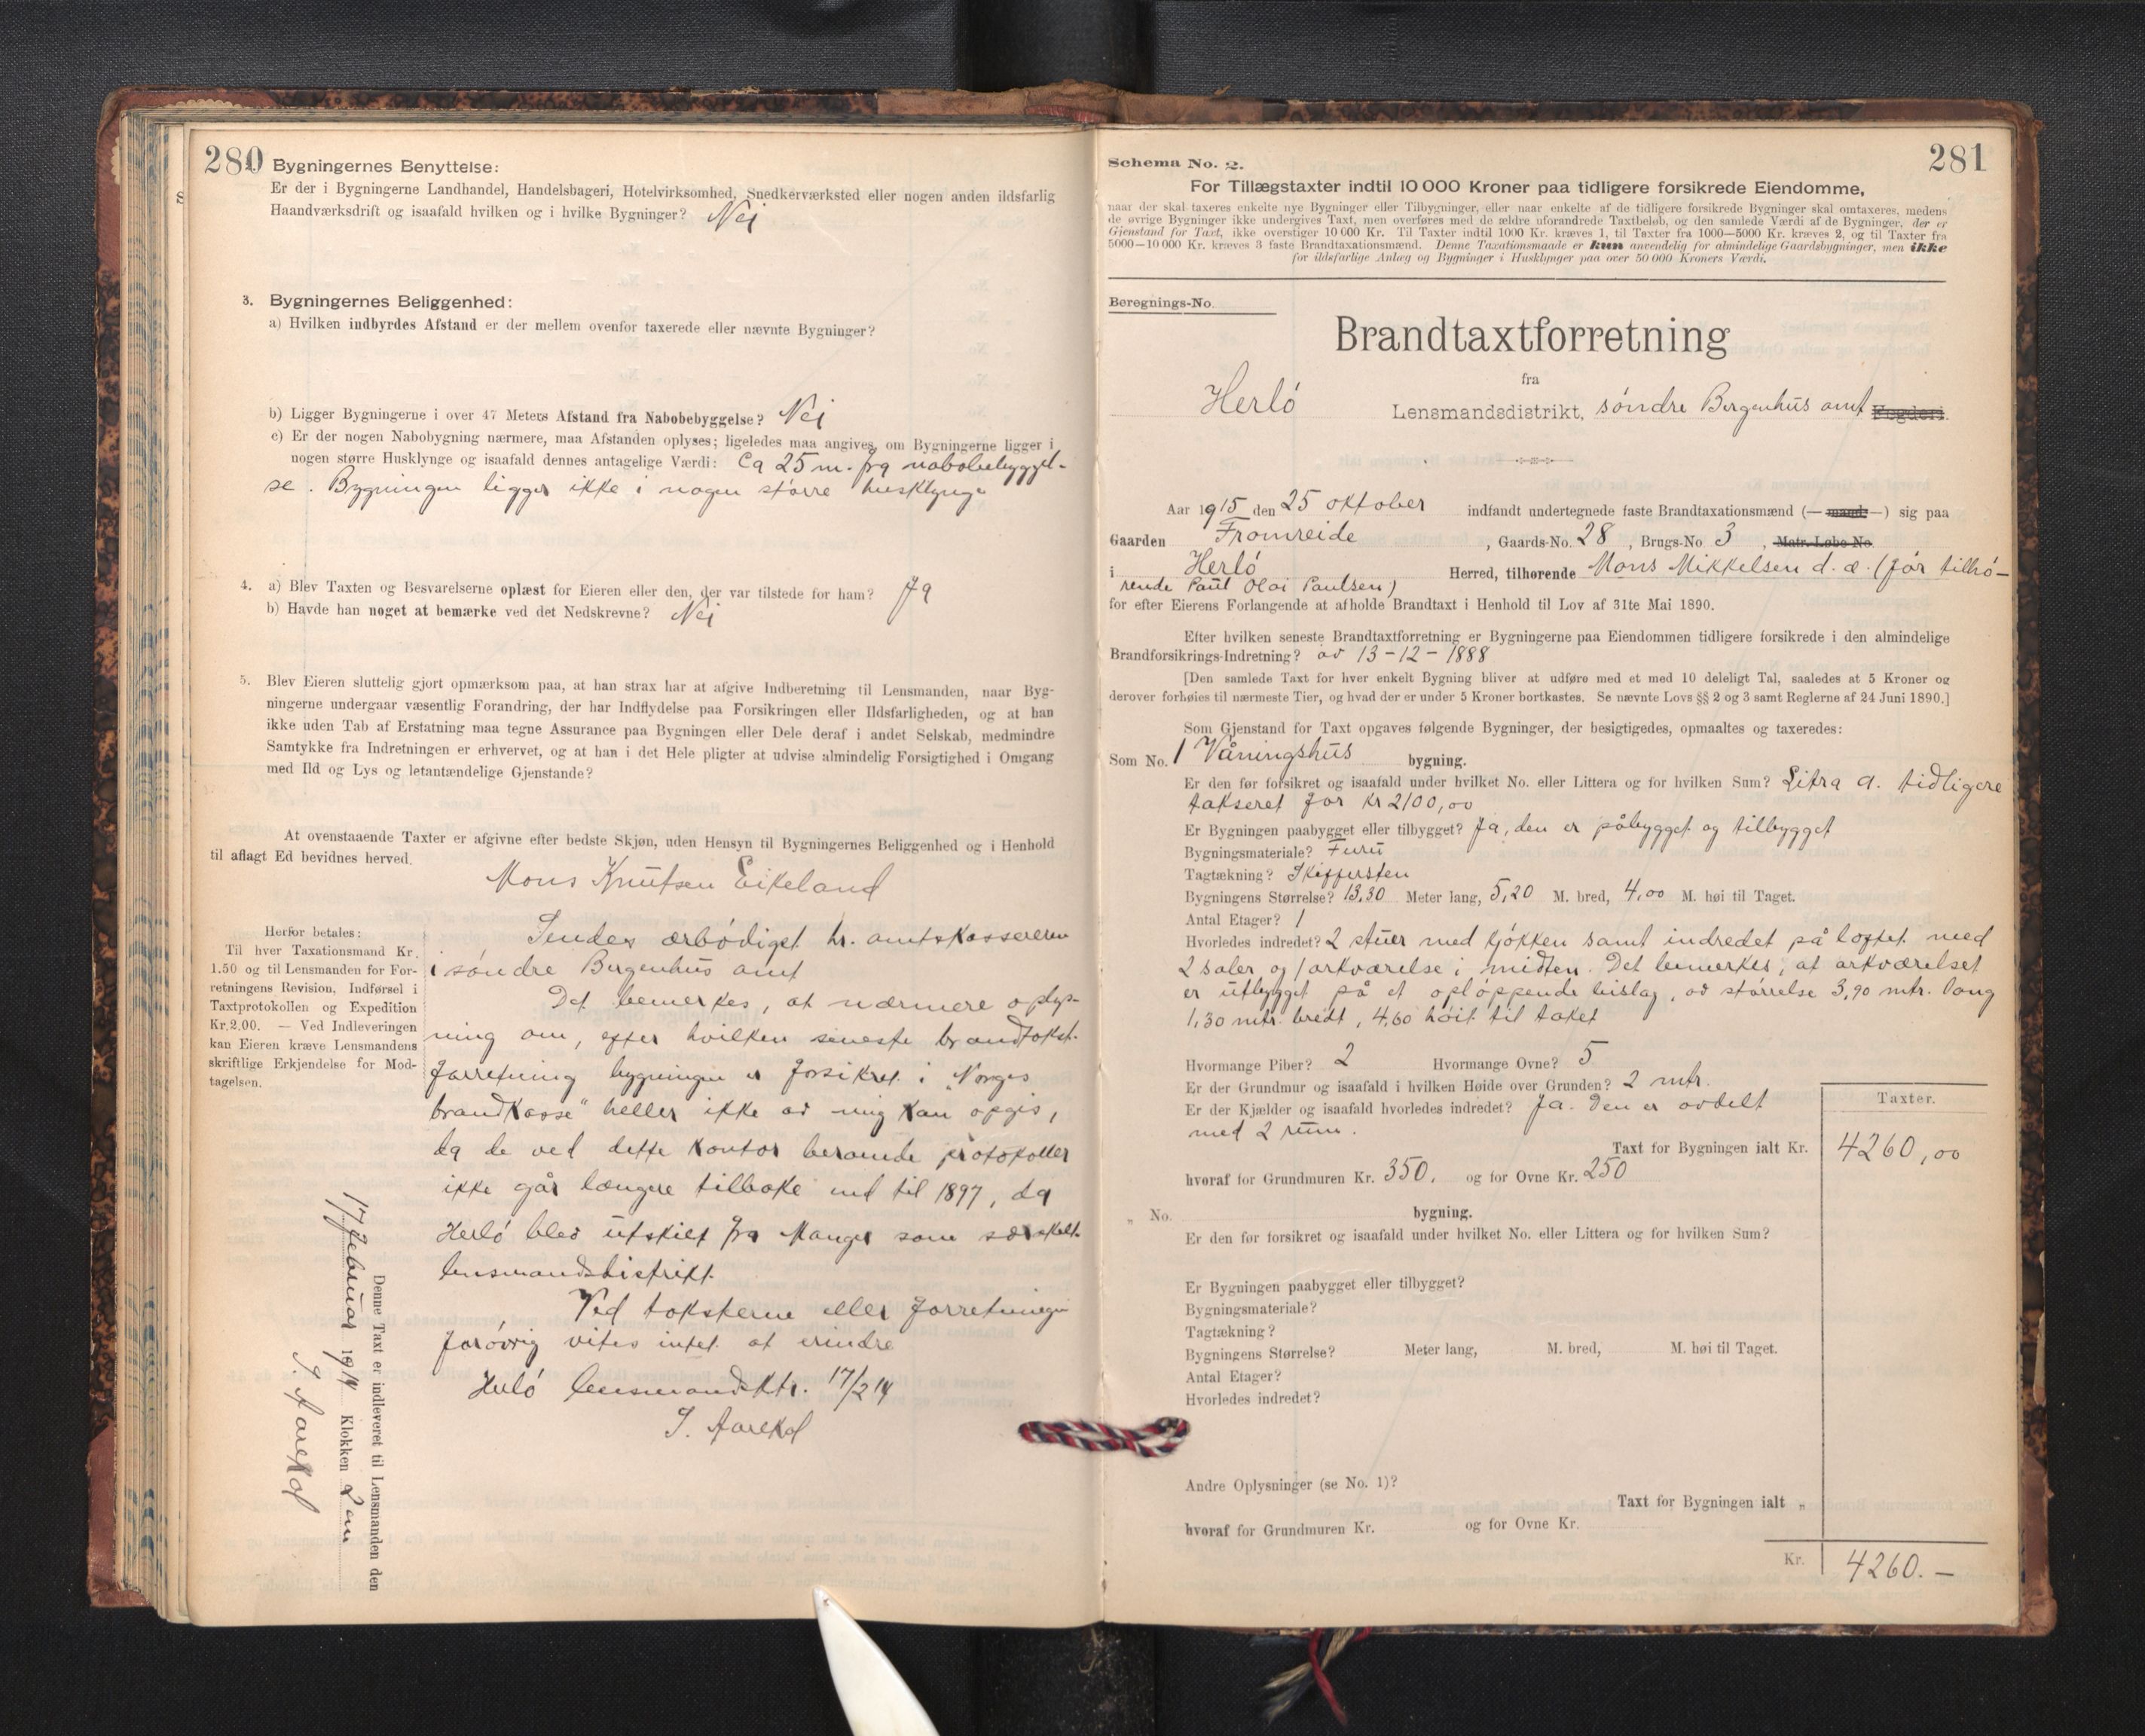 280 Bygningernes Benyttelse:
Er der i Bygningerne Landhandel, Handelsbageri, Hotelvirksomhed, Snedkerværksted eller nogen anden ildsfarlig
Haandværksdrift og isaafald hvilken og i hvilke Bygninger? Nei
3. Bygningernes Beliggenhed:
a) Hvilken indbyrdes Afstand er der mellem ovenfor taxerede eller nævnte Bygninger?
b) Ligger Bygningerne i over 47 Meters Afstand fra Nabobebyggelse? Nei
c) Er der nogen Nabobygning nærmere, maa Afstanden oplyses; ligeledes maa angives, om Bygningerne ligger i
nogen større Husklynge og isaafald dennes antagelige Værdi: Ca 25 m. fra nabobebyggel-
se. Bygningen ligger ikke i nogen større husklynge
4. a) Blev Taxten og Besvarelserne oplæst for Eieren eller den, der var tilstede for ham? Ja
b) Havde han noget at bemærke ved det Nedskrevne? Nei
5. Blev Eieren sluttelig gjort opmærksom paa, at han strax har at afgive Indberetning til Lensmanden, naar Byg-
ningerne undergaar væsentlig Forandring, der har Indflydelse paa Forsikringen eller Ildsfarligheden, og at han
ikke uden Tab af Erstatning maa tegne Assurance paa Bygningen eller Dele deraf i andet Selskab, medmindre
Samtykke fra Indretningen er erhvervet, og at han i det Hele pligter at udvise almindelig Forsigtighed i Omgang
med Ild og Lys og letantændelige Gjenstande?
At ovenstaaende Taxter er afgivne efter bedste Skjøn, uden Hensyn til Bygningernes Beliggenhed og i Henhold
til aflagt Ed bevidnes herved.
Mons Knutsen Eikeland
Herfor betales:
Til hver Taxationsmand Kr.
1.50 og til Lensmanden for For-
retningens Revision, Indførsel i
Taxtprotokollen og Expedition
Kr. 2.00. — Ved Indleveringen
kan Eieren kræve Lensmandens
skriftlige Erkjendelse for Mod-
tagelsen.
Sendes ærbødigst hr. amtskassereren
i søndre Bergenhus amt
Det bemerkes, at nærmere oplys-
ning om, efter hvilken seneste brandtakst-
forretning bygningen er forsikret i "Norges
brandkasse" heller ikke av mig kan opgis,
da de ved dette kontor beroende protokoller
ikke går længere tilbake end til 1897, da
Herlø blev utskilt fra Manger som særskilt
lensmandsdistrikt.
Ved taksterne eller forretningen
forøvrig vites intet at erindre
Herlø lensmandsktr. 17/2 14
S. Aarekol
Denne Taxt er indleveret til Lensmanden den
17 februar 1914 Klokken 2 em
S. Aarekol
281
Schema No. 2.
For Tillægstaxter indtil 10 000 Kroner paa tidligere forsikrede Eiendomme,
naar der skal taxeres enkelte nye Bygninger eller Tilbygninger, eller naar enkelte af de tidligere forsikrede Bygninger skal omtaxeres, medens
de øvrige Bygninger ikke undergives Taxt, men overføres med de ældre uforandrede Taxtbeløb, og den samlede Værdi af de Bygninger, der er
Gjenstand for Taxt, ikke overstiger 10 000 Kr. Til Taxter indtil 1000 Kr. kræves 1, til Taxter fra 1000—5000 Kr. kræves 2, og til Taxter fra
5000—10 000 Kr. kræves 3 faste Brandtaxationsmænd. Denne Taxationsmaade er kun anvendelig for almindelige Gaardsbygninger, men ikke
for ildsfarlige Anlæg og Bygninger i Husklynger paa over 50 000 Kroners Værdi.
Beregnings-No.
Brandtaxtforretning
fra
Herlø Lensmandsdistrikt, søndre Bergenhus amt Fogderi.
Aar 1915 den 25 oktober indfandt undertegnede faste Brandtaxationsmænd (— mand —) sig paa
Gaarden Fromreide, Gaards-No. 28, Brugs-No 3, Matr. Løbe-No
i Herlø Herred, tilhørende Mons Mikkelsen d. æ. (før tilhø-
rende Paul Olai Paulsen)
for efter Eierens Forlangende at afholde Brandtaxt i Henhold til Lov af 31te Mai 1890.
Efter hvilken seneste Brandtaxtforretning er Bygningerne paa Eiendommen tidligere forsikrede i den almindelige
Brandforsikrings-Indretning? av 13-12-1888
[Den samlede Taxt for hver enkelt Bygning bliver at udføre med et med 10 deleligt Tal, saaledes at 5 Kroner og
derover forhøies til nærmeste Tier, og hvad der er under 5 Kroner bortkastes. Se nævnte Lovs §§ 2 og 3 samt Reglerne af 24 Juni 1890.]
Som Gjenstand for Taxt opgaves følgende Bygninger, der besigtigedes, opmaaltes og taxeredes:
Som No. 1 Våningshus bygning.
Er den før forsikret og isaafald under hvilket No. eller Littera og for hvilken Sum? Litra a. tidligere
takseret for kr 2100,00
Er Bygningen paabygget eller tilbygget? Ja, den er påbygget og tilbygget
Bygningsmateriale? Furu
Tagtækning? Skiffersten
Bygningens Størrelse? 13,30 Meter lang, 5,20 M. bred, 4,00 M. høi til Taget.
Antal Etager? 1
Hvorledes indredet? 2 stuer med kjøkken samt indredet på loftet med
2 saler og 1 arkværelse i midten. Det bemerkes, at arkværelset
er utbygget på et opløppende bislag, av størrelse 3,90 mtr. lang
1,30 mtr. bredt, 4,60 høit til taket
Hvormange Piber? 2 Hvormange Ovne? 5
Er der Grundmur og isaafald i hvilken Høide over Grunden? 2 mtr.
Er der Kjælder og isaafald hvorledes indredet? Ja. Den er avdelt
med 2 rum.
Taxter.
Taxt for Bygningen ialt Kr. 4260,00
hvoraf for Grundmuren Kr. 350. og for Ovne Kr. 250
„ No. bygning.
Er den før forsikret og isaafald under hvilket No. eller Littera og for hvilken Sum?
Er Bygningen paabygget eller tilbygget?
Bygningsmateriale?
Tagtækning?
Bygningens Størrelse? Meter lang, M. bred, M. høi til Taget.
Antal Etager?
Hvorledes indredet?
Andre Oplysninger (se No. 1)?
Taxt for Bygningen ialt „
hvoraf for Grundmuren Kr. og for Ovne Kr.
Kr. 4260.—